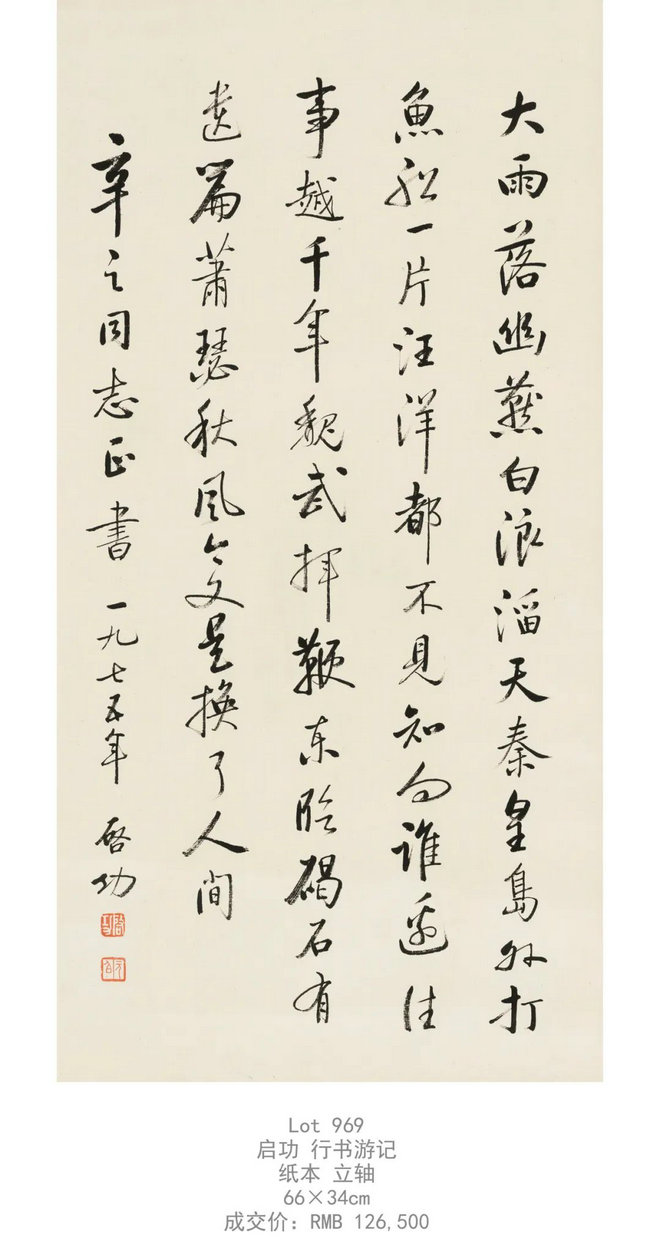 大雨落幽燕白浪滔天秦皇島外打
魚船一片汪洋都不見知向誰邊往
事越千年魏武揮鞭東臨碣石有
遺篇蕭瑟秋風今又是換了人間
辛之同志正書 一九七五年 啓功
Lot 969
启功 行书游记
纸本 立轴
66×34cm
成交价: RMB 126,500